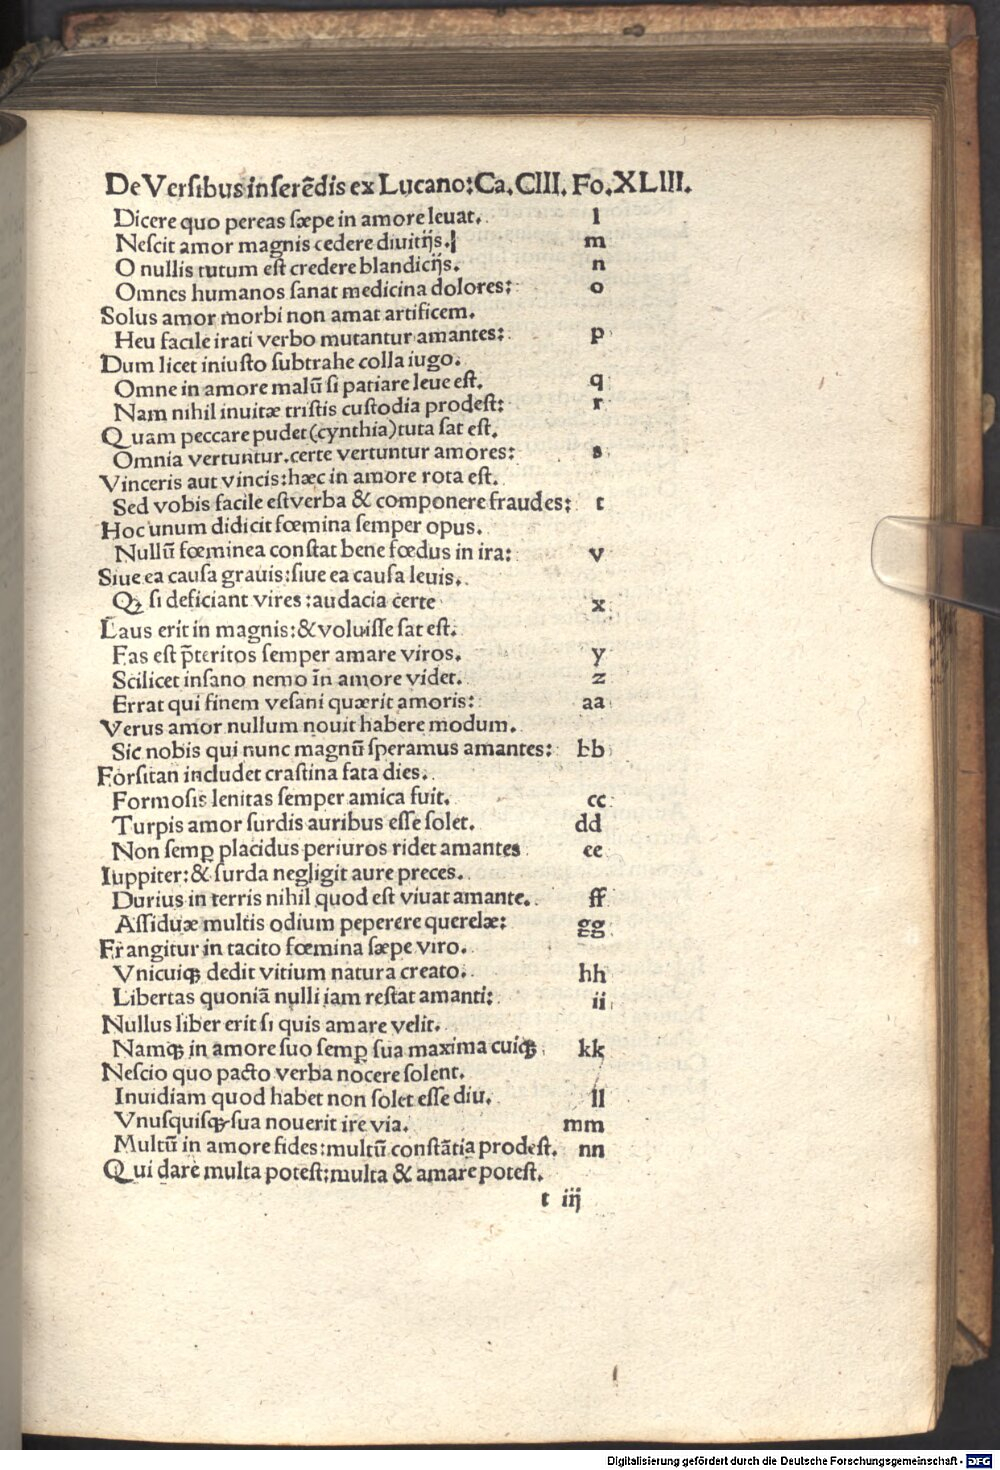 De Verſibus inſerēdis ex Lucano: Ca. CIII. Fo. XLIII.
Dicere quo pereas ſæpe in amore leuat. l
Neſcit amor magnis cedere diuitijs. m
O nullis tutum eſt credere blandicijs. n
Omnes humanos ſanat medicina dolores: o
Solus amor morbi non amat artificem.
Heu facile irati verbo mutantur amantes: p
Dum licet iniuſto ſubtrahe colla iugo.
Omne in amore malū ſi patiare leue eſt. q
Nam nihil inuitæ triſtis cuſtodia prodeſt: r
Quam peccare pudet (cynthia) tuta ſat eſt.
Omnia vertuntur. certe vertuntur amores: s
Vinceris aut vincis: hæc in amore rota eſt.
Sed vobis facile eſt verba & componere fraudes: t
Hoc unum didicit fœmina ſemper opus.
Nullū fœminea conſtat bene fœdus in ira: v
Siue ea cauſa grauis: ſiue ea cauſa leuis.
Qꝫ ſi deficiant vires: audacia certe x
Laus erit in magnis: & voluiſſe ſat eſt.
Fas eſt p̄teritos ſemper amare viros. y
Scilicet inſano nemo īn amore videt. z
Errat qui finem veſani quærit amoris: aa
Verus amor nullum nouit habere modum.
Sic nobis qui nunc magnū ſperamus amantes: bb
Forſitan includet craſtina fata dies.
Formoſis lenitas ſemper amica fuit. cc
Turpis amor ſurdis auribus eſſe ſolet. dd
Non ſemꝑ placidus periuros ridet amantes ee
Iuppiter: & ſurda negligit aure preces.
Durius in terris nihil quod eſt viuat amante. ff
Aſſiduæ multis odium peperere querelæ: gg
Frangitur in tacito fœmina ſæpe viro.
Vnicuiqꝫ dedit vitium natura creato. hh
Libertas quoniā nulli iam reſtat amanti: ii
Nullus liber erit ſi quis amare velit.
Namqꝫ in amore ſuo ſemꝑ ſua maxima cuiqꝫ kk
Neſcio quo pacto verba nocere ſolent.
Inuidiam quod habet non ſolet eſſe diu. ll
Vnuſquiſqꝫ ſua nouerit ire via. mm
Multū in amore fides: multū conſtātia prodeſt. nn
Qui dare multa poteſt: multa & amare poteſt.
t iij
Digitalisierung gefördert durch die Deutsche Forschungsgemeinschaft - DFG